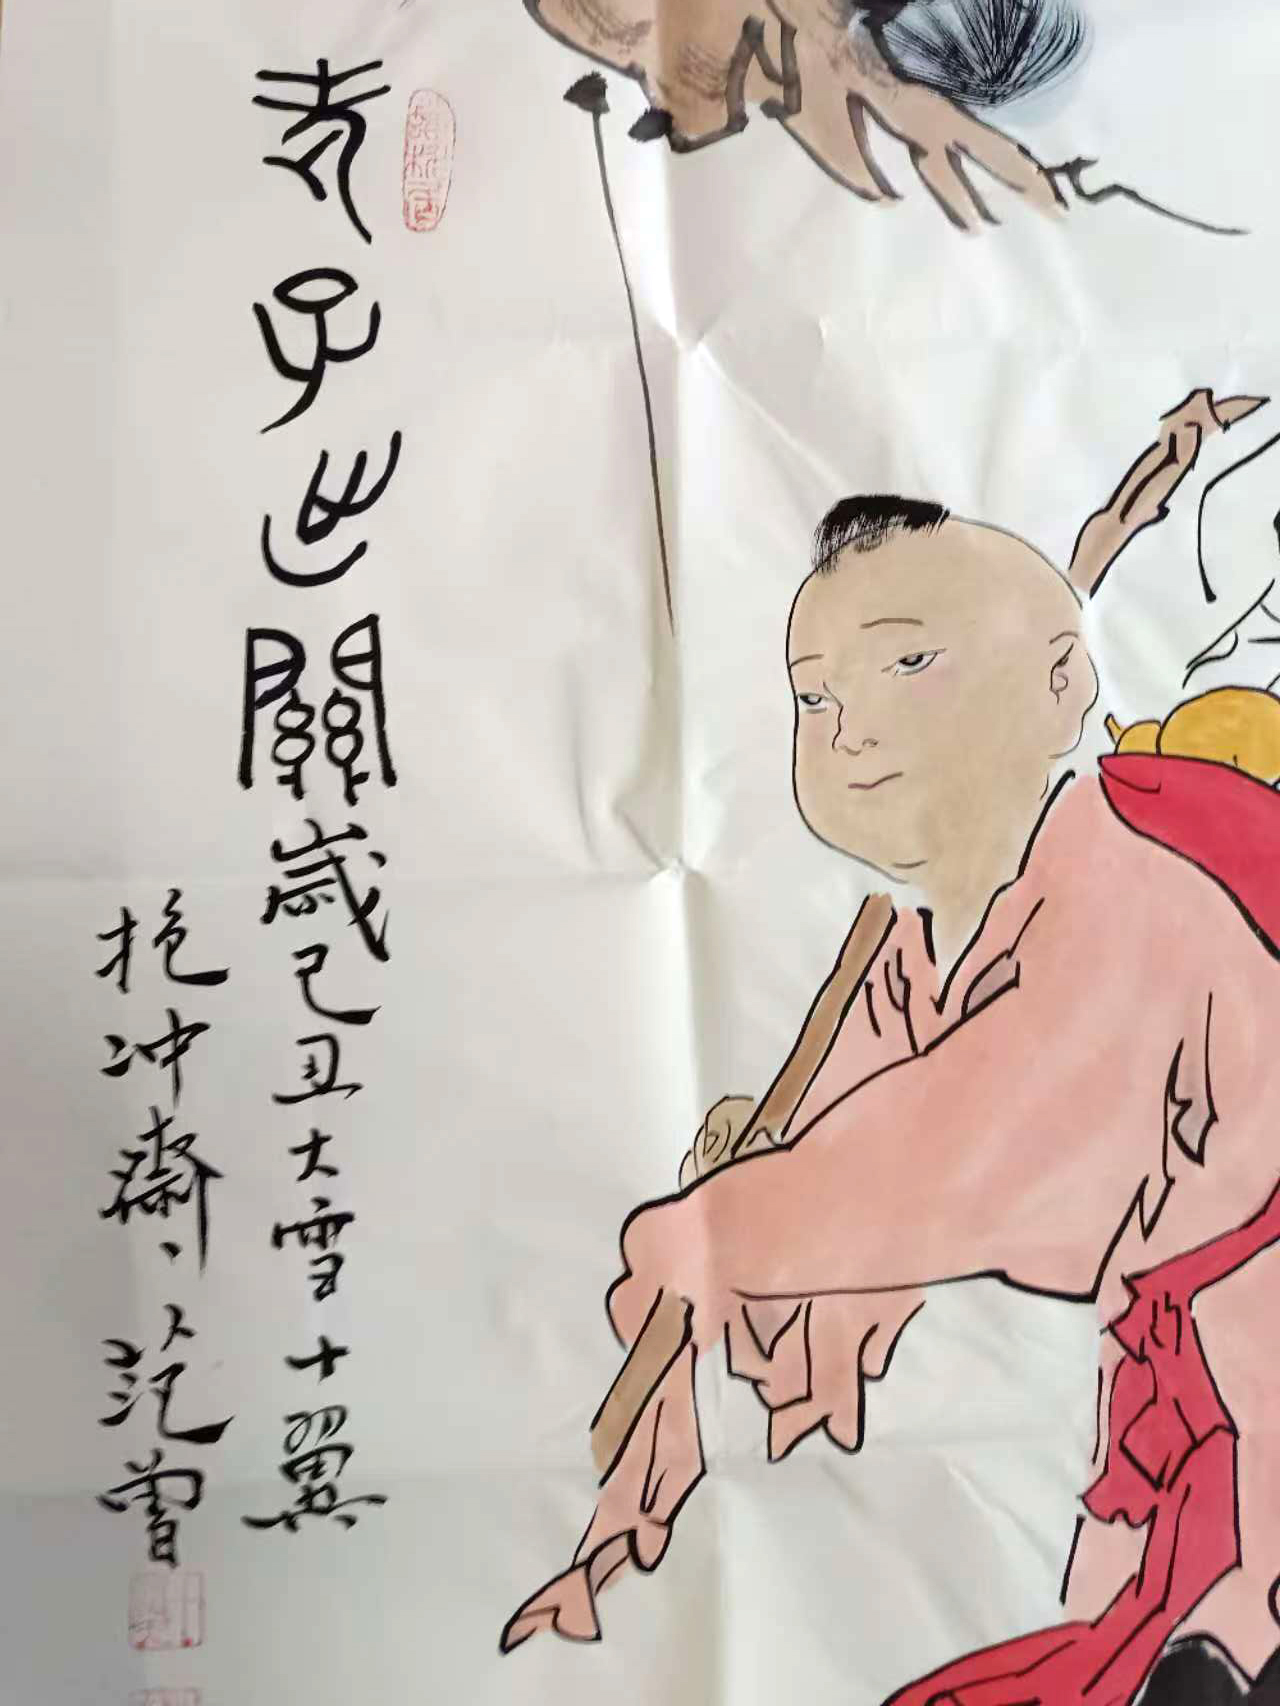 老子出關歲己丑大雪十翼
抱冲齋、范曾